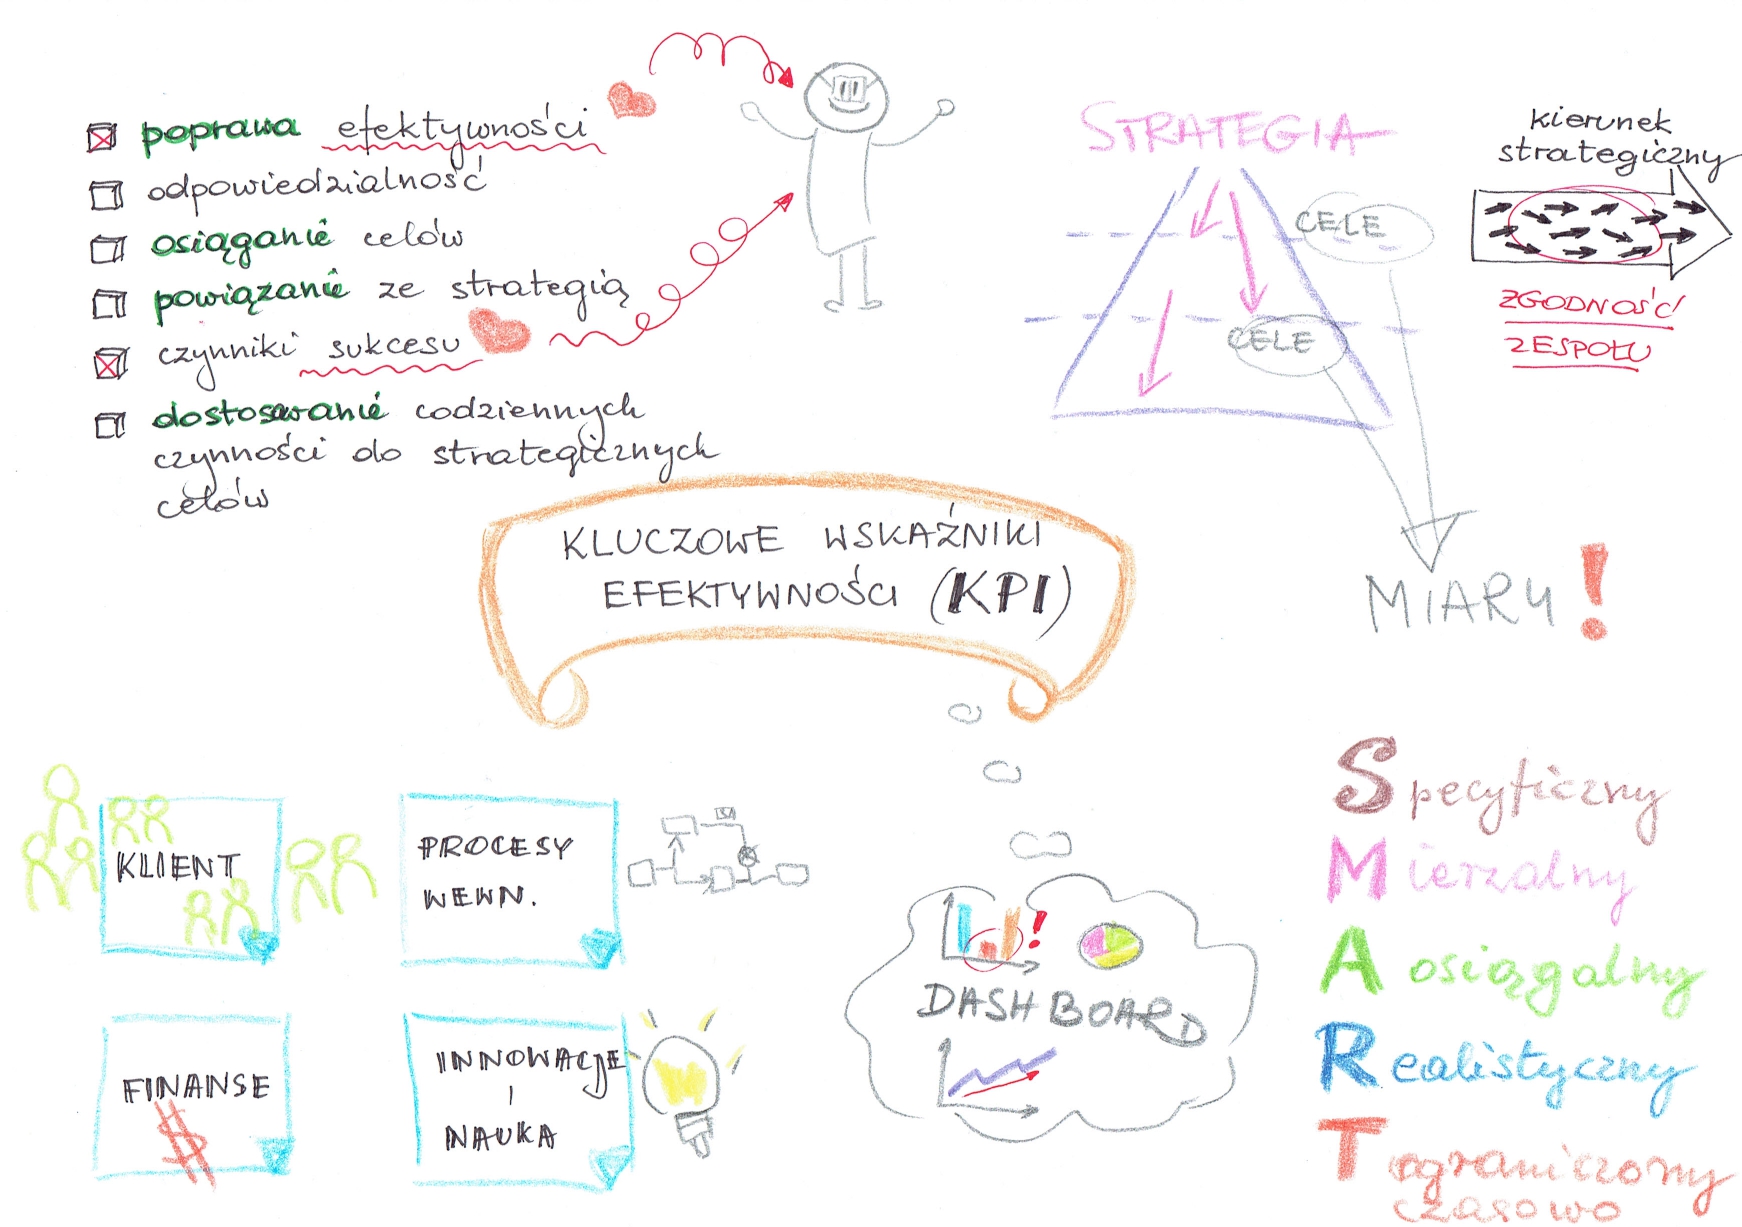 poprawa efektywności
odpowiedzialność
osiąganie celów
powiązanie ze strategią
czynniki sukcesu
dostosowanie codziennych
czynności do strategicznych
celów
STRATEGIA
CELE
CELE
kierunek
strategiczny
ZGODNOŚĆ
ZESPOŁU
MIARY!
KLUCZOWE WSKAŹNIKI
EFEKTYWNOŚCI (KPI)
KLIENT
PROCESY
WEWN.
FINANSE
$
INNOWACJE
I
NAUKA
!
DASHBOARD
Specyficzny
Mierzalny
A osiągalny
Realistyczny
T ograniczony
czasowo